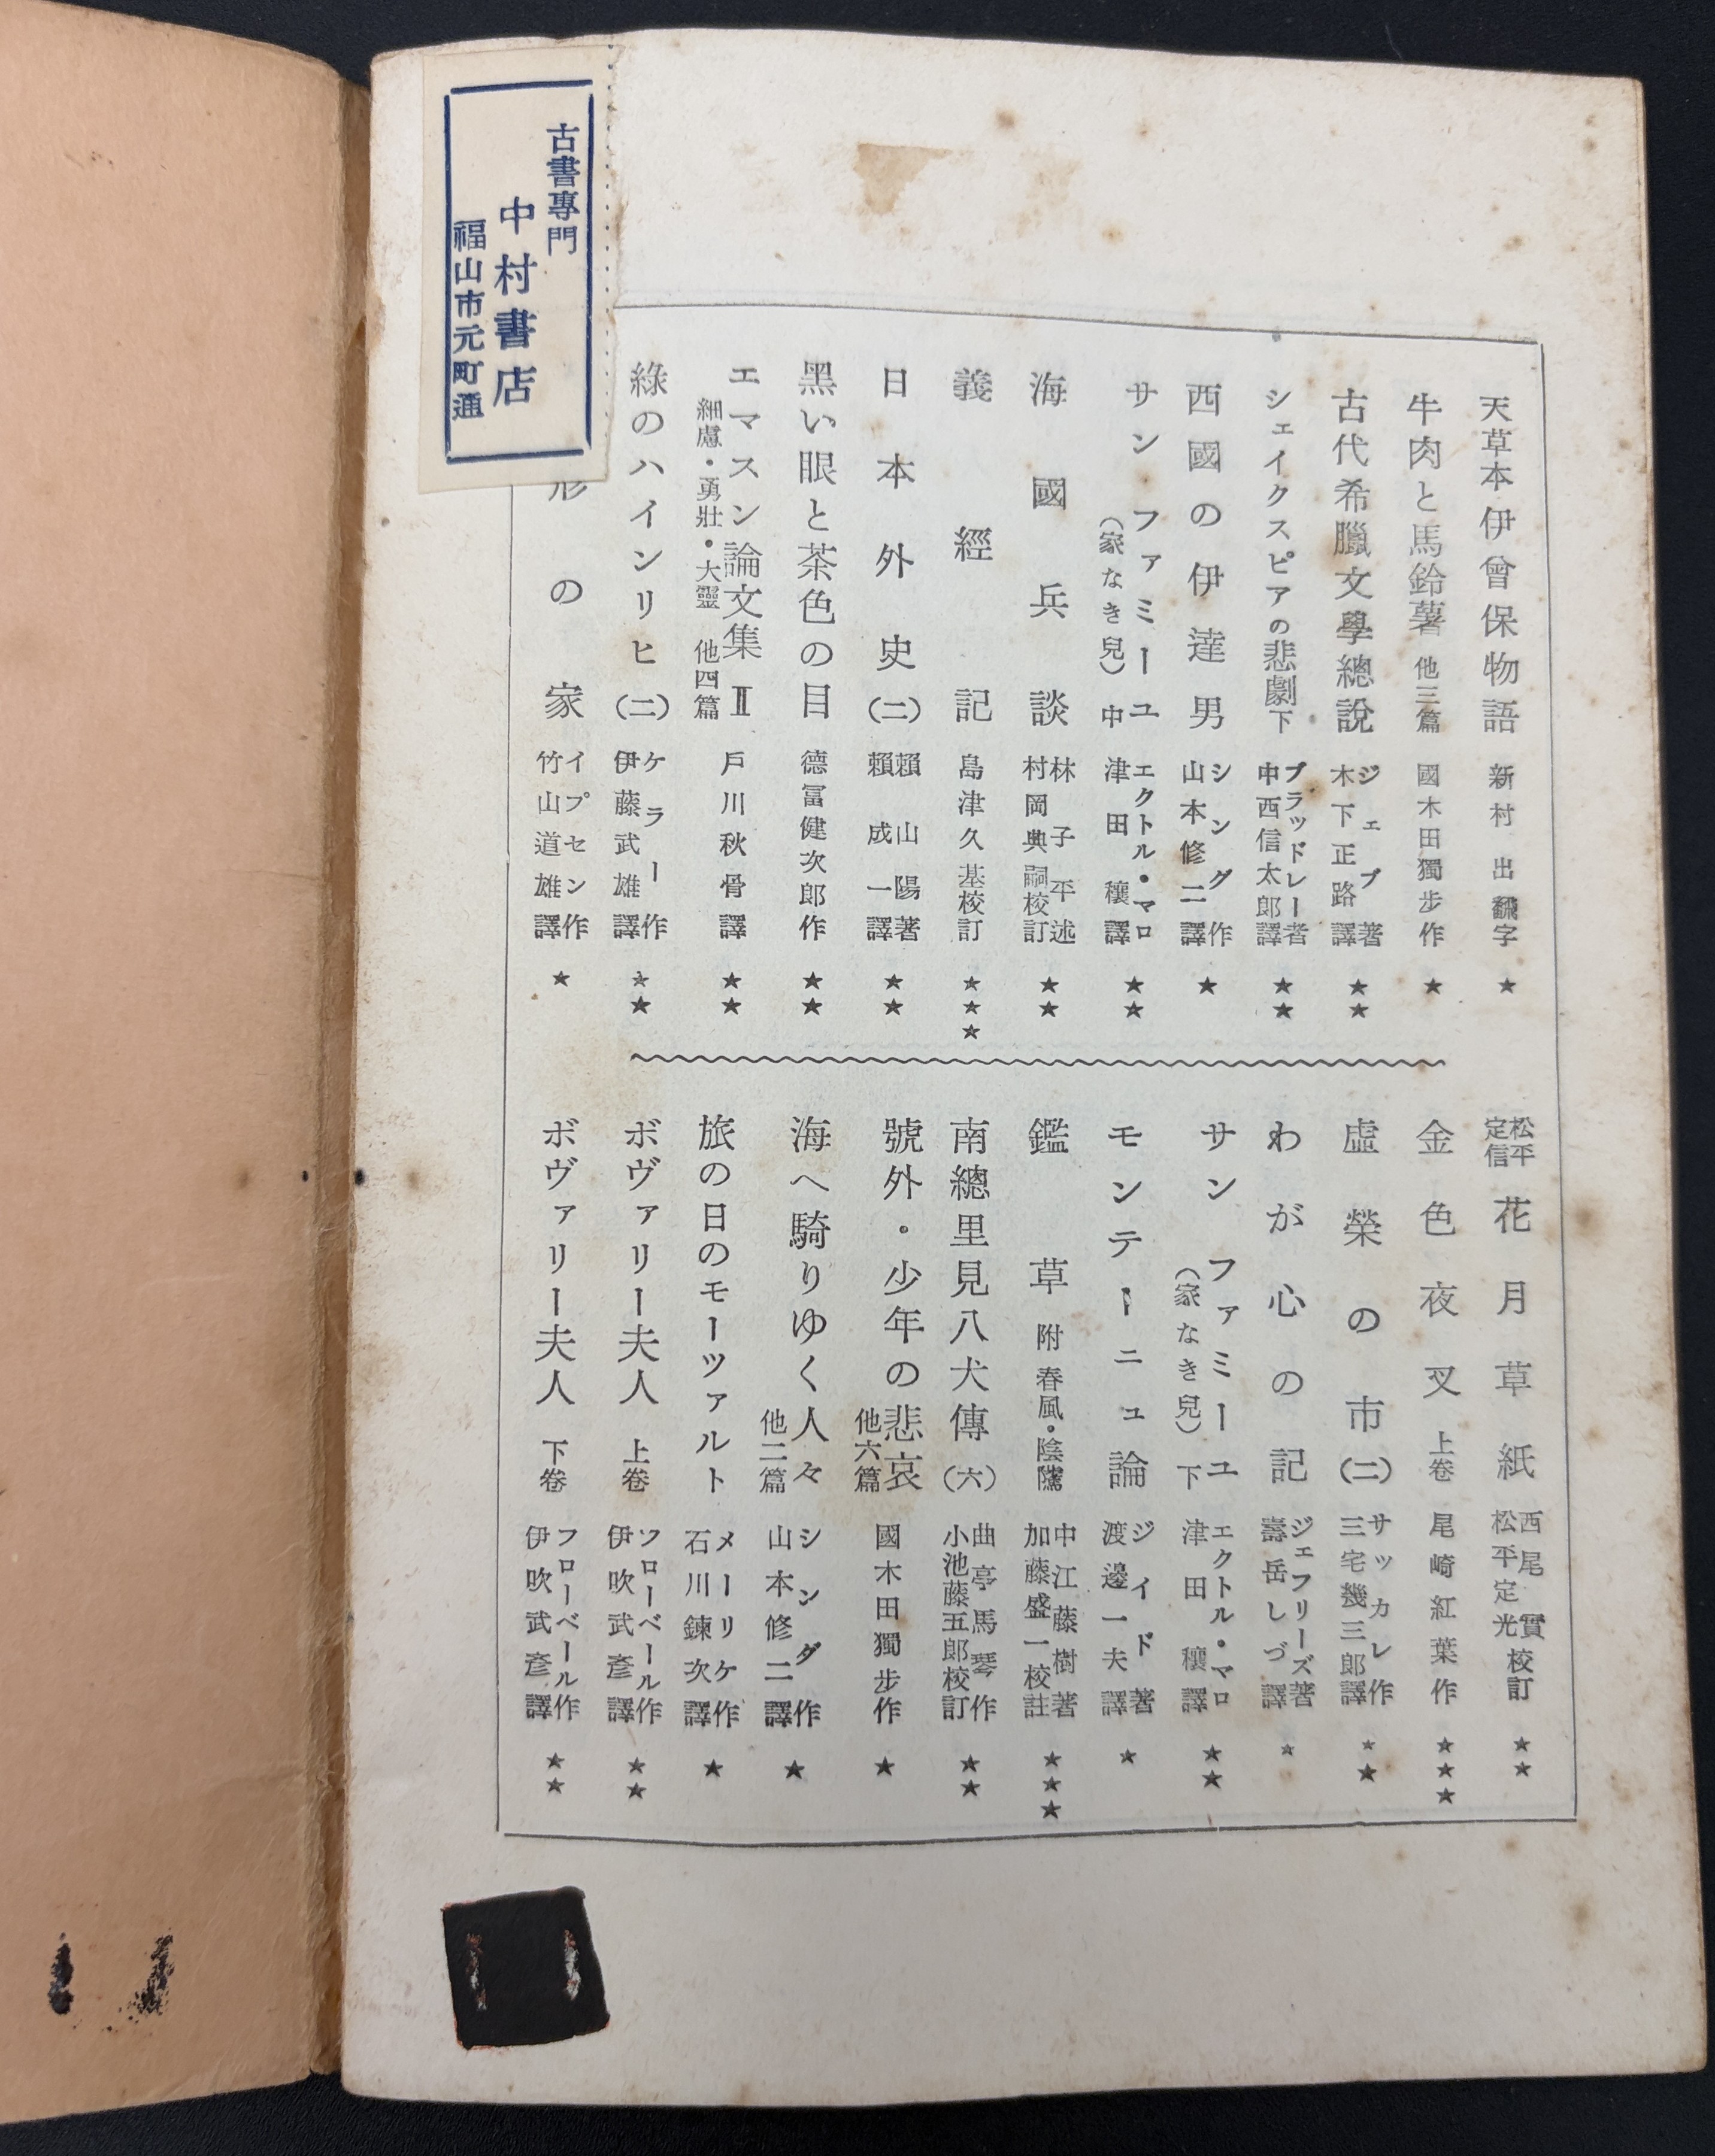 古書專門
中村書店
福山市元町通
天草本伊曾保物語 新村出飜字 ★
牛肉と馬鈴薯 他三篇 國木田獨步作 ★
古代希臘文學總說 ジェブ著 木下正路譯 ★★
シェイクスピアの悲劇 下 ブラッドレー著 中西信太郎譯 ★★
西國の伊達男 シング作 山本修二譯 ★
サン ファミーユ(家なき兒)中 エクトル・マロ 津田穰譯 ★★
海國兵談 林子平述 村岡典嗣校訂 ★★
義經記 島津久基校訂 ★★★
日本外史(二) 賴山陽著 賴成一譯 ★★
黑い眼と茶色の目 德冨健次郎作 ★★
エマスン論文集 Ⅱ 細慮・勇壯・大靈 他四篇 戶川秋骨譯 ★★
綠のハインリヒ(二) ケラー作 伊藤武雄譯 ★★
形の家 イプセン作 竹山道雄譯 ★
松平定信 花月草紙 西尾實 松平定光 校訂 ★★
金色夜叉 上卷 尾崎紅葉作 ★★★
虛榮の市(二) サッカレ作 三宅幾三郎譯 ★★
わが心の記 ジェフリーズ著 壽岳しづ譯 ★
サン ファミーユ(家なき兒)下 エクトル・マロ 津田穰譯 ★★
モンテーニュ論 ジイド著 渡邊一夫譯 ★
鑑草 附 春風・陰隲 中江藤樹著 加藤盛一校註 ★★★
南總里見八犬傳(六) 曲亭馬琴作 小池藤五郎校訂 ★★
號外・少年の悲哀 他六篇 國木田獨步作 ★
海へ騎りゆく人々 他二篇 シング作 山本修二譯 ★
旅の日のモーツァルト メーリケ作 石川鍊次譯 ★
ボヴァリー夫人 上卷 フローベール作 伊吹武彥譯 ★★
ボヴァリー夫人 下卷 フローベール作 伊吹武彥譯 ★★